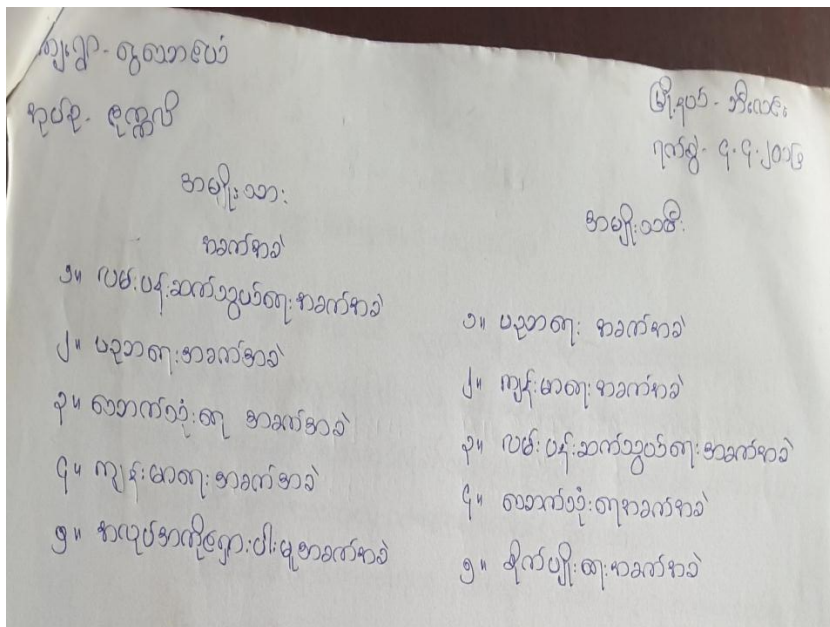 ကျေးရွာ -
အုပ်စု -
မြို့နယ် - ဘီးလင်း
ရက်စွဲ - ၄.၄.၂၀၁၆
အမျိုးသား
အခက်အခဲ
၁။ လမ်းပန်းဆက်သွယ်ရေးအခက်အခဲ
၂။ ပညာရေးအခက်အခဲ
၃။ သောက်သုံးရေ အခက်အခဲ
၄။ ကျန်းမာရေးအခက်အခဲ
၅။ အလုပ်အကိုင်ရှားပါးမှုအခက်အခဲ
အမျိုးသမီး
၁။ ပညာရေး အခက်အခဲ
၂။ ကျန်းမာရေးအခက်အခဲ
၃။ လမ်းပန်းဆက်သွယ်ရေးအခက်အခဲ
၄။ သောက်သုံးရေအခက်အခဲ
၅။ စိုက်ပျိုးရေးအခက်အခဲ